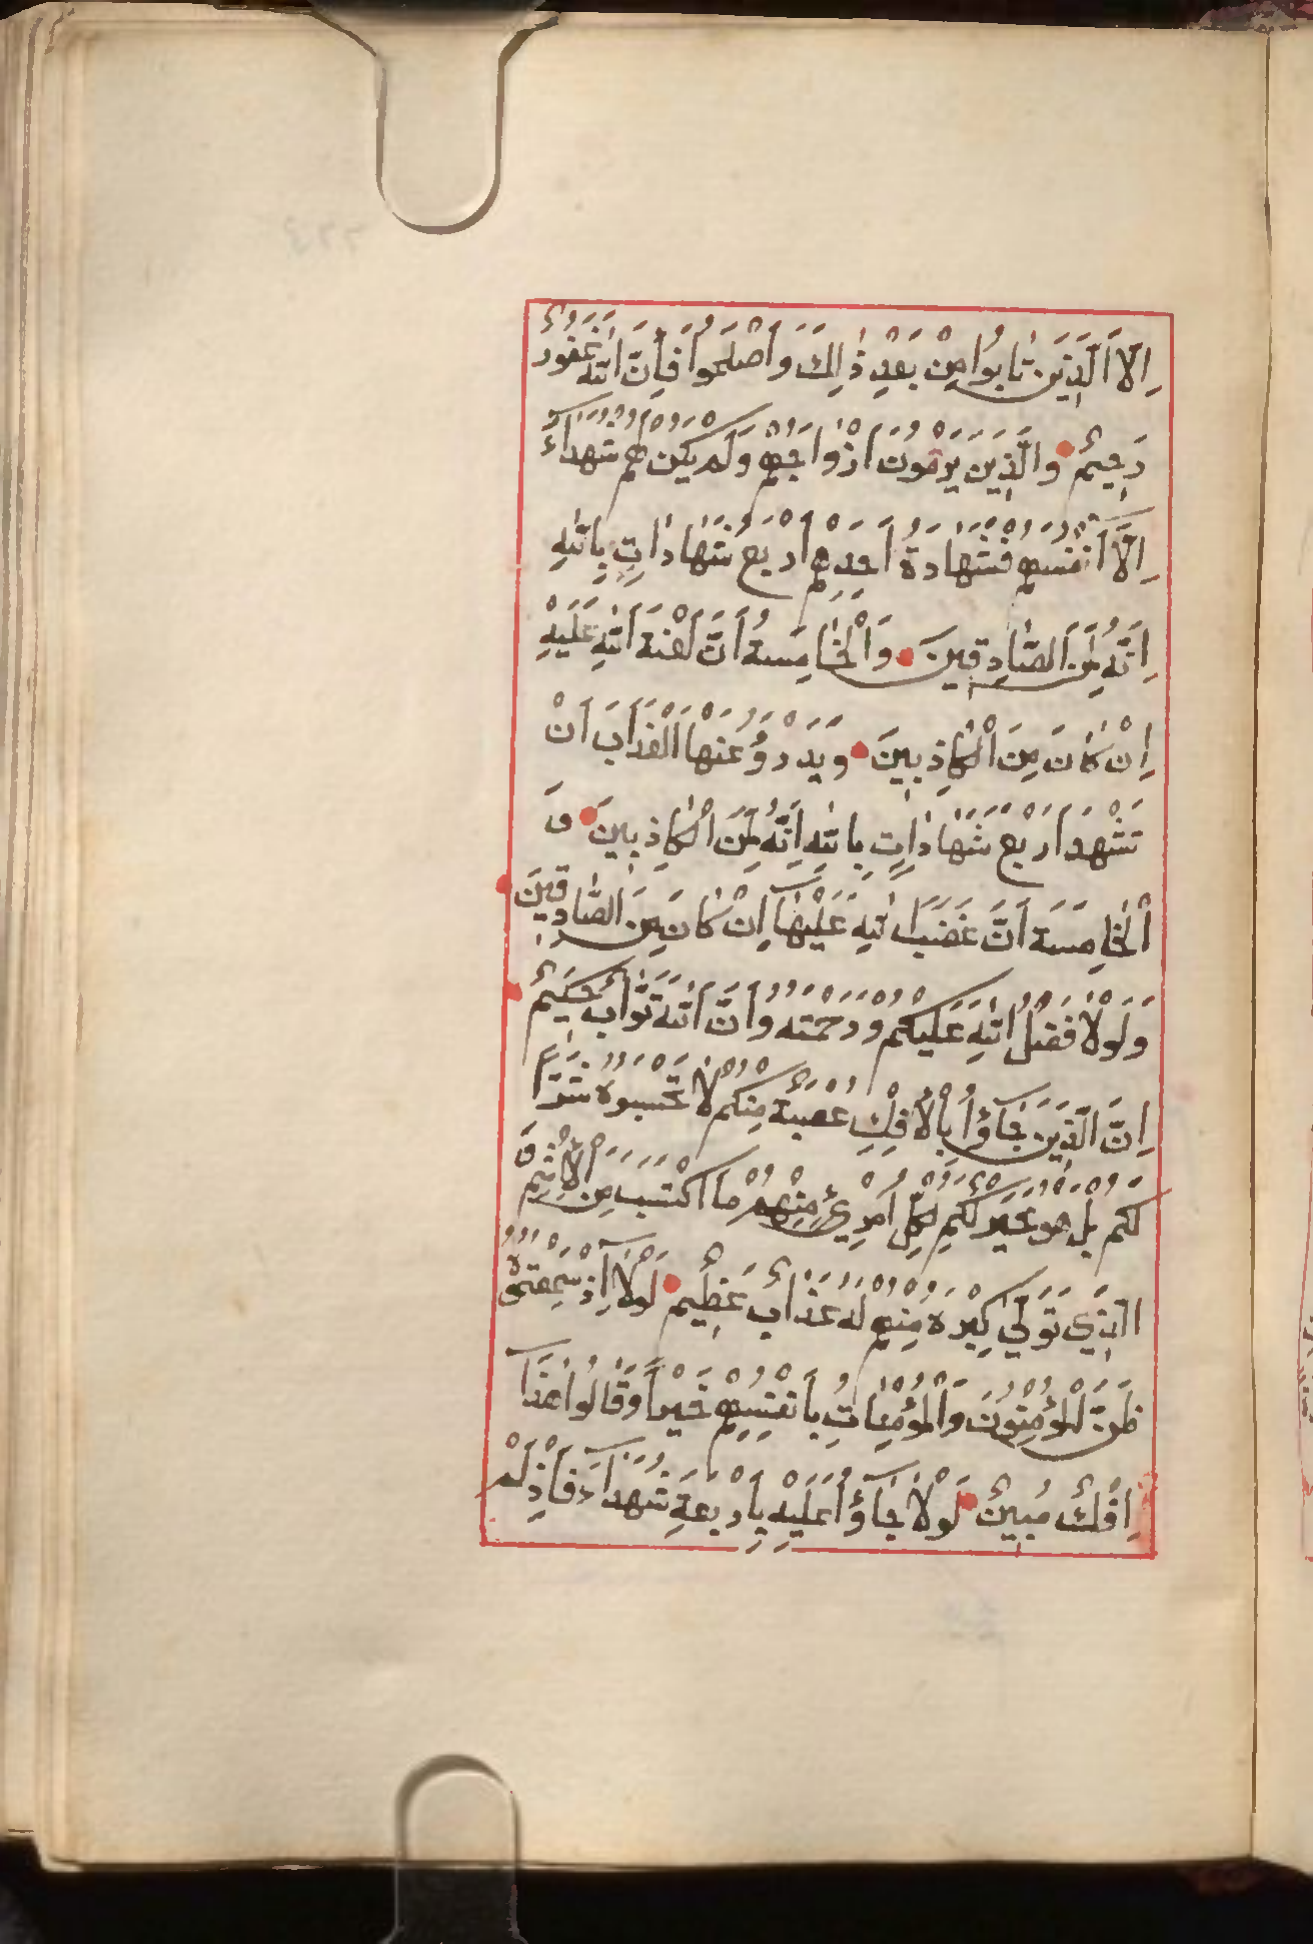 اِلَّا الَّذِينَ تَابُوا مِنْ بَعْدِ ذٰلِكَ وَاَصْلَحُوا فَاِنَّ اللّٰهَ غَفُورٌ
رَحِيمٌ وَالَّذِينَ يَرْمُونَ اَزْوَاجَهُمْ وَلَمْ يَكُنْ لَهُمْ شُهَدَاءُ
اِلَّا اَنْفُسُهُمْ فَشَهَادَةُ اَحَدِهِمْ اَرْبَعُ شَهَادَاتٍ بِاللّٰهِ
اِنَّهُ لَمِنَ الصَّادِقِينَ وَالْخَامِسَةُ اَنَّ لَعْنَةَ اللّٰهِ عَلَيْهِ
اِنْ كَانَ مِنَ الْكَاذِبِينَ وَيَدْرَؤُ عَنْهَا الْعَذَابَ اَنْ
تَشْهَدَ اَرْبَعَ شَهَادَاتٍ بِاللّٰهِ اِنَّهُ لَمِنَ الْكَاذِبِينَ وَ
الْخَامِسَةَ اَنَّ غَضَبَ اللّٰهِ عَلَيْهَا اِنْ كَانَ مِنَ الصَّادِقِينَ
وَلَوْلَا فَضْلُ اللّٰهِ عَلَيْكُمْ وَرَحْمَتُهُ وَاَنَّ اللّٰهَ تَوَّابٌ حَكِيمٌ
اِنَّ الَّذِينَ جَاؤُا بِالْاِفْكِ عُصْبَةٌ مِنْكُمْ لَا تَحْسَبُوهُ شَرًّا
لَكُمْ بَلْ هُوَ خَيْرٌ لَكُمْ لِكُلِّ امْرِئٍ مِنْهُمْ مَا اكْتَسَبَ مِنَ الْاِثْمِ وَ
الَّذِي تَوَلّٰى كِبْرَهُ مِنْهُمْ لَهُ عَذَابٌ عَظِيمٌ لَوْلَا اِذْ سَمِعْتُمُوهُ
ظَنَّ الْمُؤْمِنُونَ وَالْمُؤْمِنَاتُ بِاَنْفُسِهِمْ خَيْرًا وَقَالُوا هٰذَا
اِفْكٌ مُبِينٌ لَوْلَا جَاؤُا عَلَيْهِ بِاَرْبَعَةِ شُهَدَاءَ فَاِذْ لَمْ